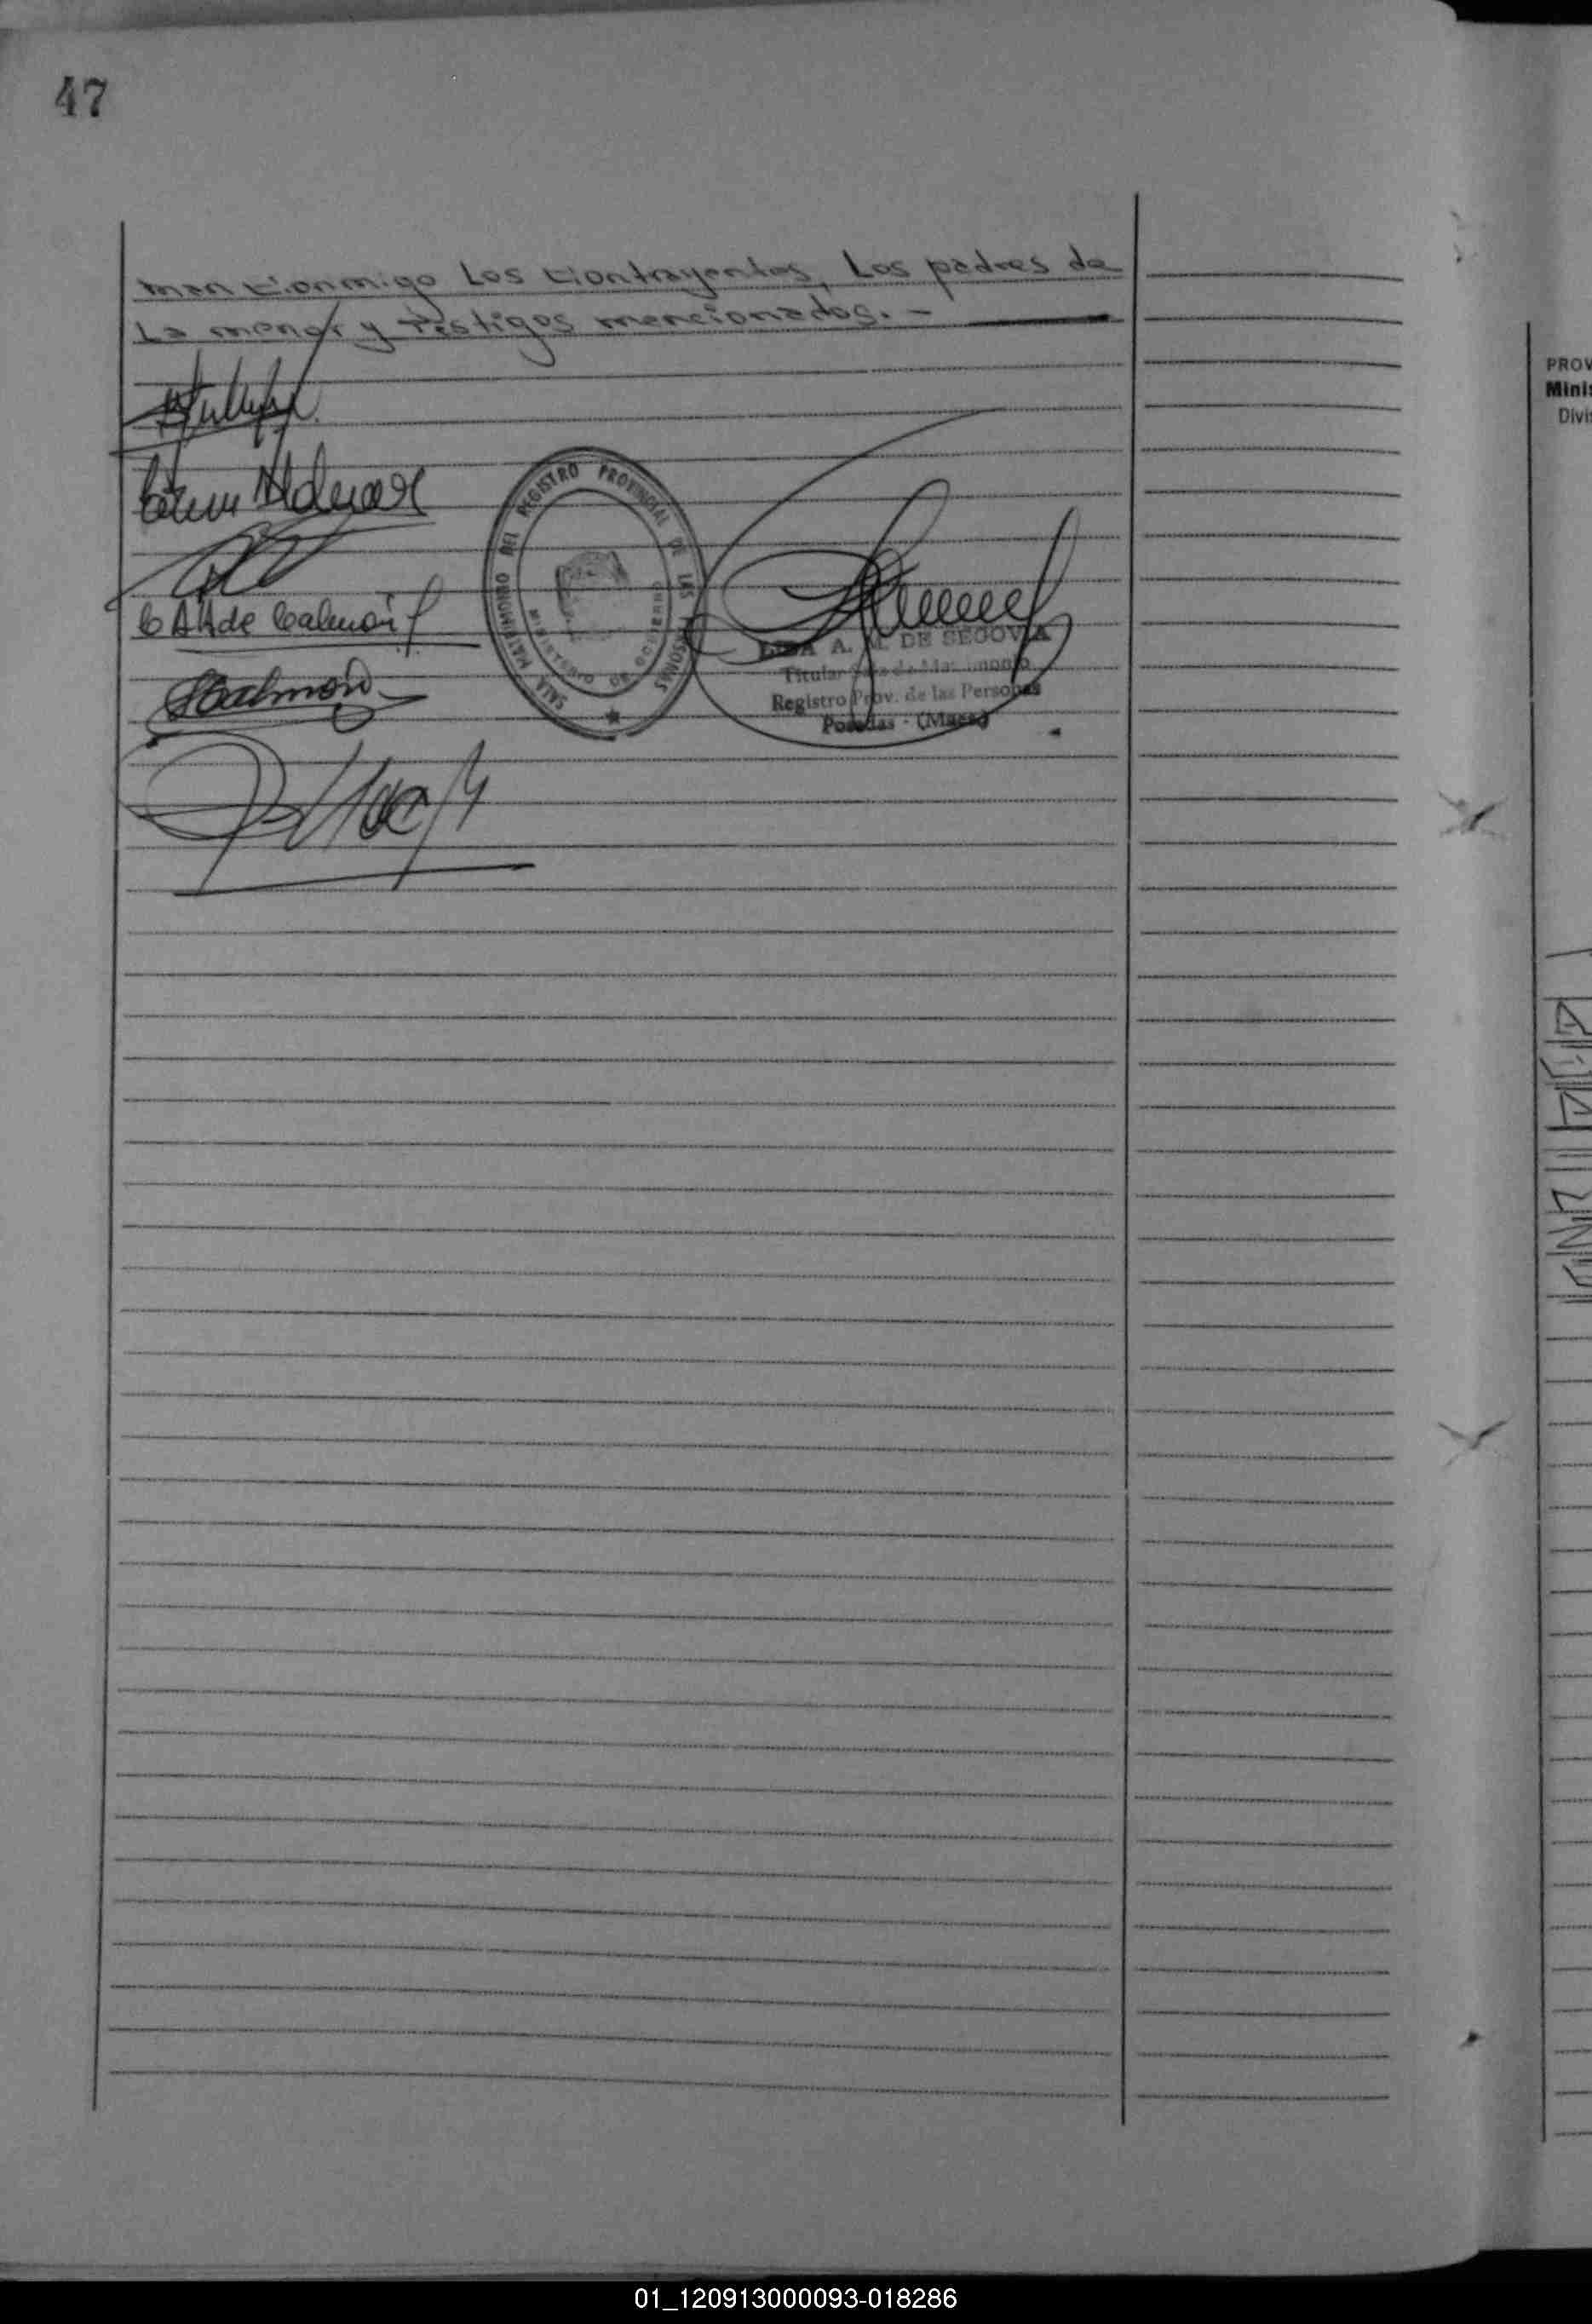 47
man conmigo Los contrayentes, Los padres de
La menor y Testigos mencionados. -
C A A de Calmon
SCalmon
SALA MATRIMONIO DEL REGISTRO PROVINCIAL DE LAS PERSONAS
MINISTERIO DE GOBIERNO
A. M. DE SEGOVIA
Titular Sala de Matrimonio
Registro Prov. de las Personas
Posadas - (Mnes)
PROV
Minis
Divi
01_120913000093-018286